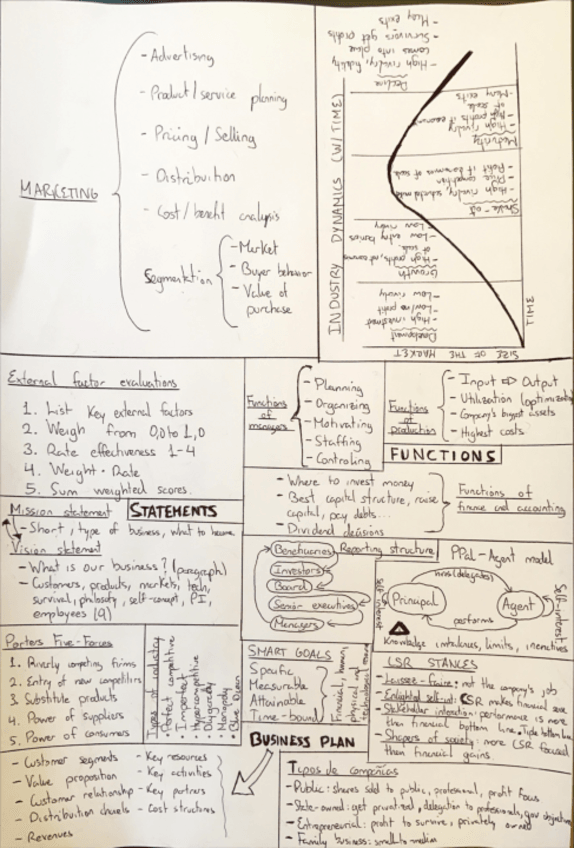 MARKETING
- Advertising
- Product/service planning
- Pricing / Selling
- Distribution
- Cost/benefit analysis
Segmentation
- Market
- Buyer behavior
- Value of
purchase
INDUSTRY DYNAMICS (W/TIME)
SIZE OF THE MARKET
TIME
Development
- High investment
- Low/no profit
- Low rivalry
Growth
- High profits, not economies
of scale.
- Low entry barriers
- Low rivalry
Shake-out
- High rivalry, substantial
- Price competition
- Profit if economies of scale
Maturity
- High rivalry
- High profits if economies
of scale
- Many exits
Decline
- High rivalry,
comes into place
- Survivors get profits
- Many exits
External factor evaluations
1. List key external factors
2. Weigh from 0,0 to 1,0
3. Rate effectiveness 1-4
4. Weight · Rate
5. Sum weighted scores.
Functions
of
managers
- Planning
- Organizing
- Motivating
- Staffing
- Controling
Functions
of
production
- Input ⇨ Output
- Utilization (optimization)
- Company's biggest assets
- Highest costs
FUNCTIONS
- Where to invest money
- Best capital structure, raise
capital, pay debts...
- Dividend decisions
Functions of
finance and accounting
Mission statement
STATEMENTS
- Short, type of business, what to become
Vision statement
- What is our business? (paragraph)
- Customers, products, markets, tech,
survival, philosophy, self-concept, PI,
employees (9)
Reporting structure
Beneficiaries
Investors
Board
Senior executives
Managers
PPal-Agent model
Hires (delegates)
Principal
Agent
performs
Self-interest
Self-interest
Knowledge imbalances, limits, incentives
Porters Five-Forces
1. Rivalry competing firms
2. Entry of new competitors
3. Substitute products
4. Power of Suppliers
5. Power of consumers
Types of industry
· Perfect competitive
· Imperfect
· Hypercompetitive
· Oligopoly
· Monopoly
· Blue Ocean
SMART GOALS
Specific
Measurable
Attainable
Time-bound
Financial, human,
physical and
technological
CSR STANCES
- Laissez-faire: not the company's job
- Enlighted self-int: CSR makes financial sense
- Stakeholder interaction: performance is more
than financial bottom line, triple bottom line
- Shapers of society: more CSR focused
than financial gains
BUSINESS PLAN
- Customer segments
- Value proposition
- Customer relationship
- Distribution chanels
- Revenues
- Key resources
- Key activities
- Key partners
- Cost structures
Tipos de compañías
- Public: shares sold to public, professional, profit focus
- State-owned: get privatized, delegation to professionals, gov objectives
- Entrepreneurial: profit to survive, privately owned
- Family business: small to medium